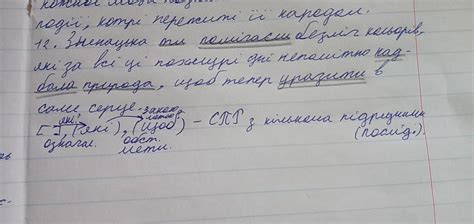 кожної мови
події, котрі пережиті її народом.
12. Зненацька ти помічаєш безліч кольорів,
які за всі ці похмурі дні непомітно над-
бала природа, щоб тепер уразити в
саме серце.
[ ], (які), (щоб) – СПР з кількома підрядними
які?
з якою метою?
означ. обст. мети. (послід.)